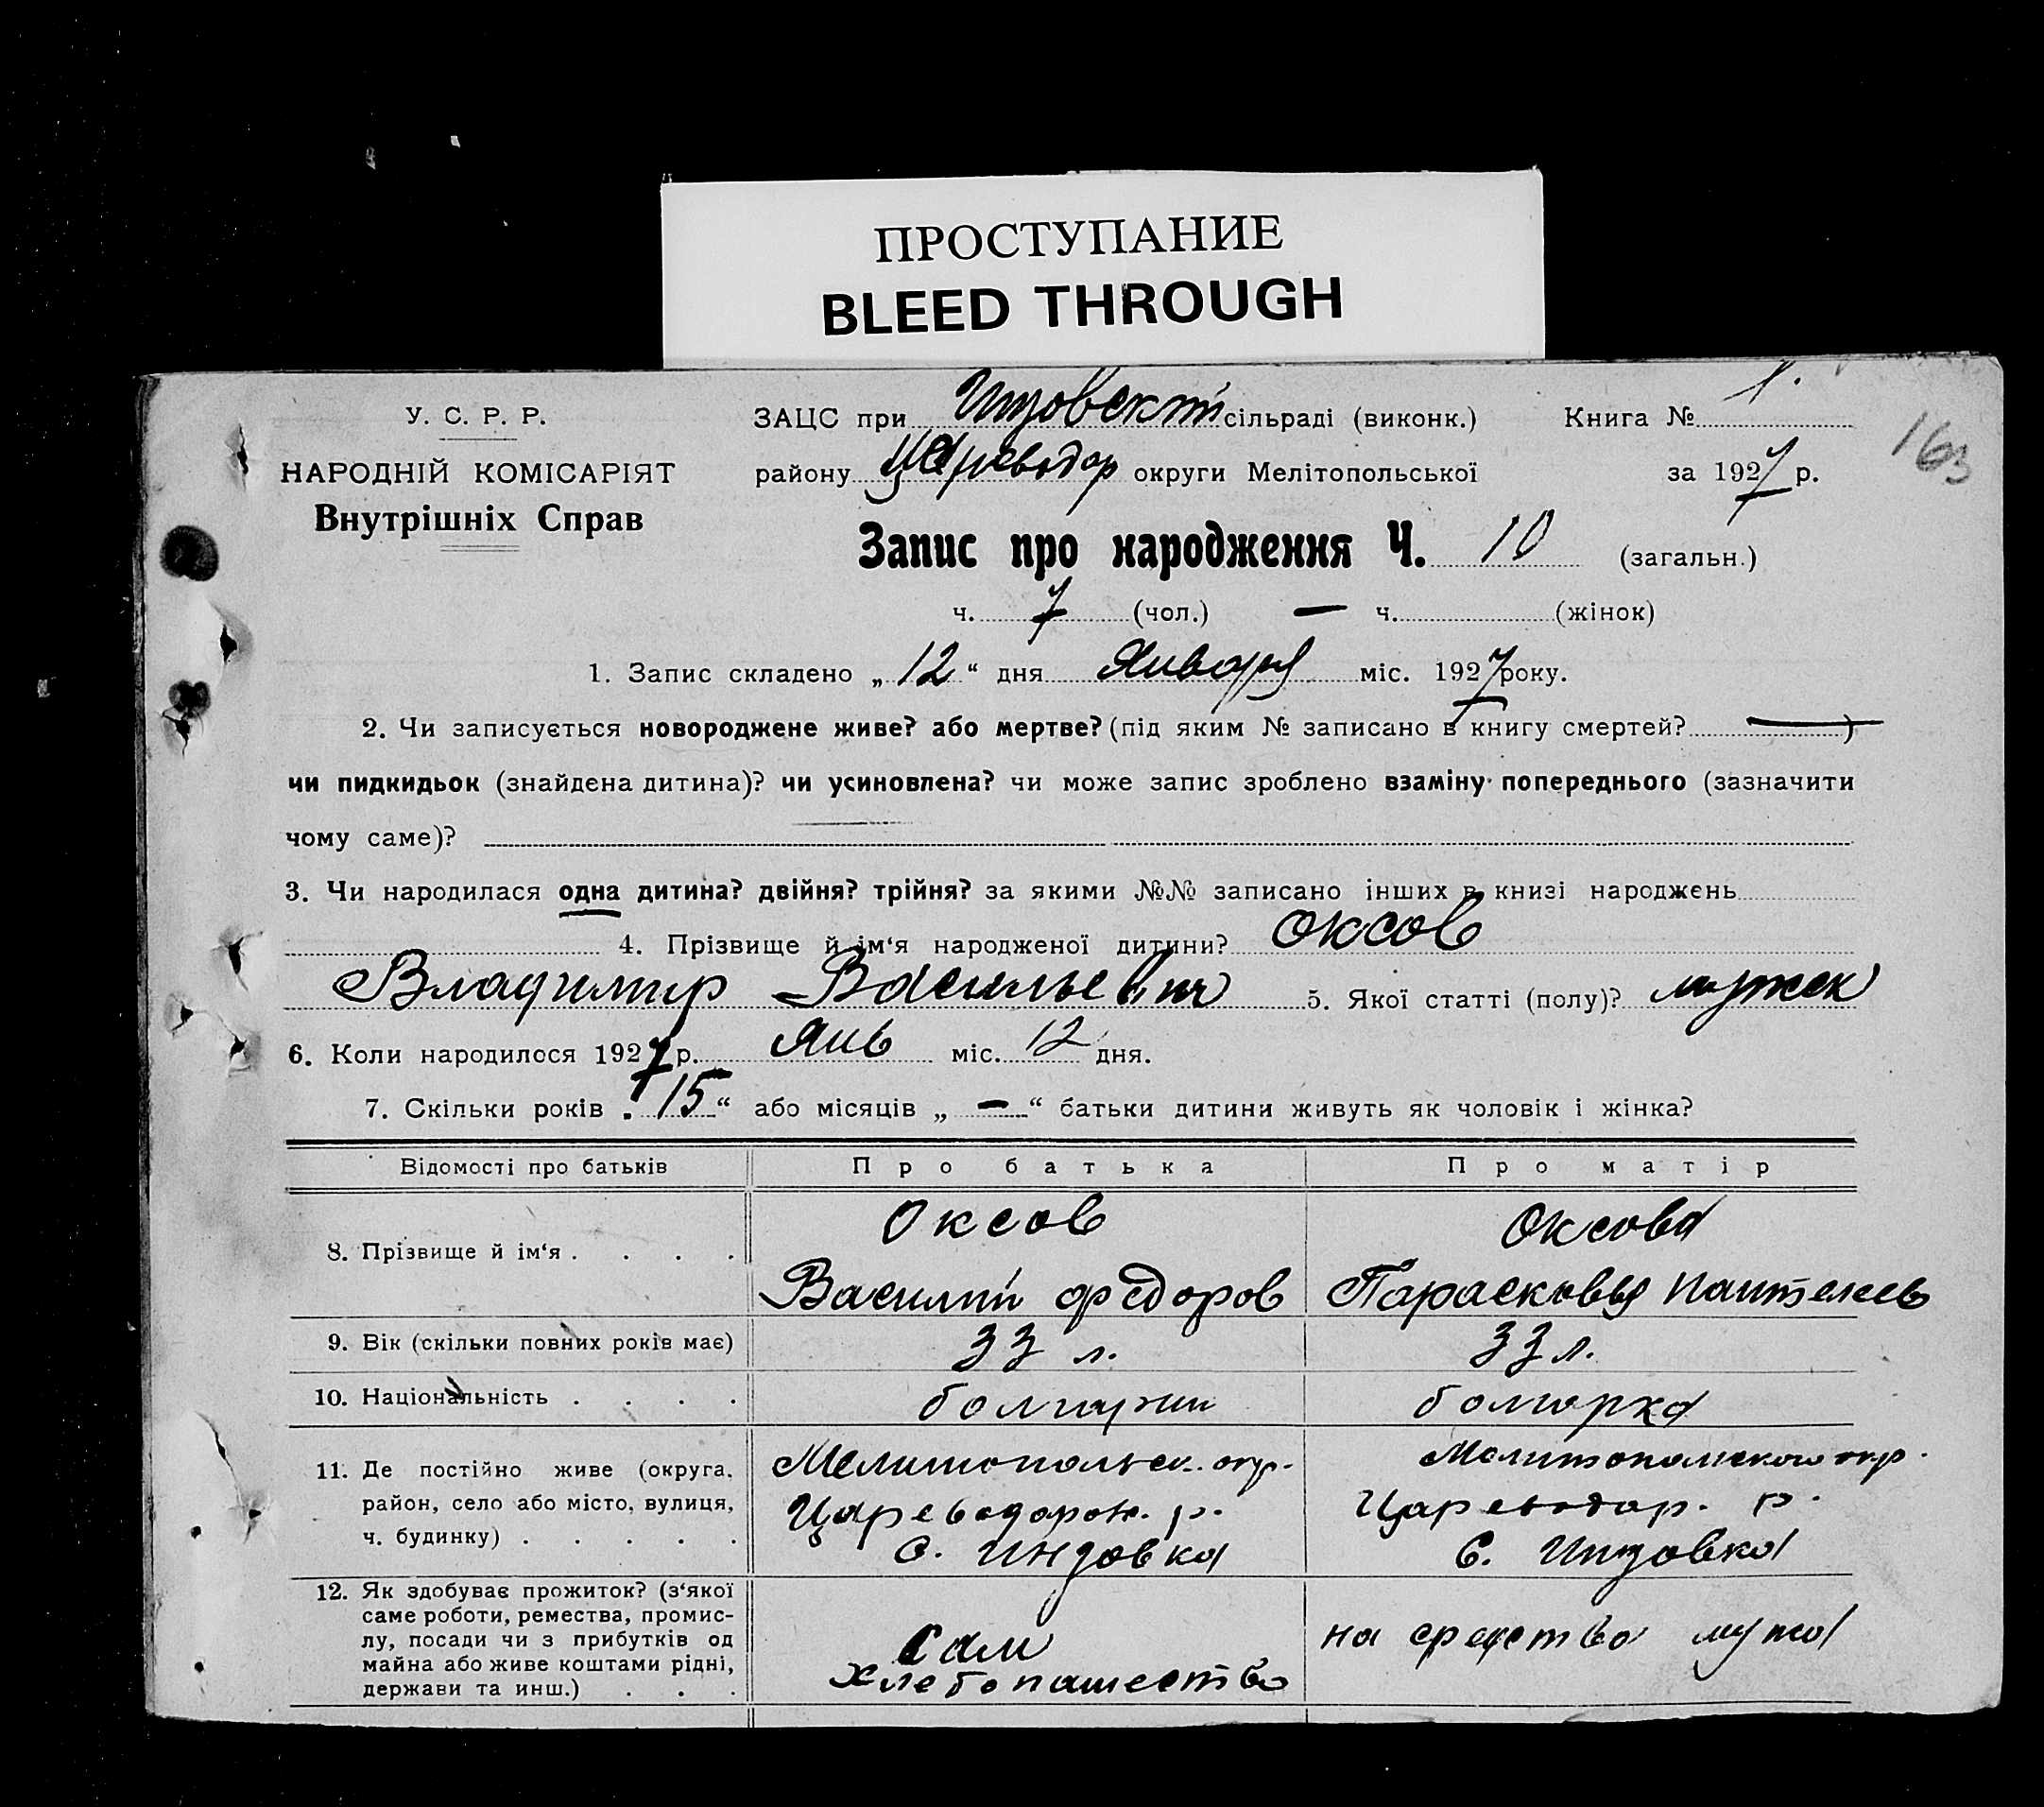 ПРОСТУПАНИЕ
BLEED THROUGH
У. С. Р. Р. ЗАЦС при сільраді (виконк.) Книга № 1.
163
НАРОДНІЙ КОМІСАРІЯТ району Цареводар округи Мелітопольської за 1927 р.
Внутрішніх Справ
Запис про народження Ч. 10 (загальн.)
ч. 7 (чол.) — ч. (жінок)
1. Запис складено „12“ дня Января міс. 1927 року.
2. Чи записується новороджене живе? або мертве? (під яким № записано в книгу смертей? —)
чи пидкидьок (знайдена дитина)? чи усиновлена? чи може запис зроблено взаміну попереднього (зазначити
чому саме)?
3. Чи народилася одна дитина? двійня? трійня? за якими №№ записано інших в книзі народжень
4. Прізвище й ім‘я народженої дитини? Оксов
Владимир Васильевич 5. Якої статті (полу)? мужск
6. Коли народилося 1927 р. Янв міс. 12 дня.
7. Скільки років „15“ або місяців „—“ батьки дитини живуть як чоловік і жінка?
Відомості про батьків Про батька Про матір
8. Прізвище й ім‘я . . . . Оксов Оксова
Василий Федоров Парасковья Пантелеев
9. Вік (скільки повних років має) 33 л. 33 л.
10. Національність . . . . болгарин болгарка
11. Де постійно живе (округа, Мелитопольск. окр. Мелитопольского окр.
район, село або місто, вулиця, Цареводаров. р. Цареводар. р.
ч. будинку) . . . . . с. Инзовка с. Инзовка
12. Як здобуває прожиток? (з‘якої
саме роботи, ремества, промис-
лу, посади чи з прибутків од сам на средства мужа
майна або живе коштами рідні, хлебопашество
держави та инш.) . . .